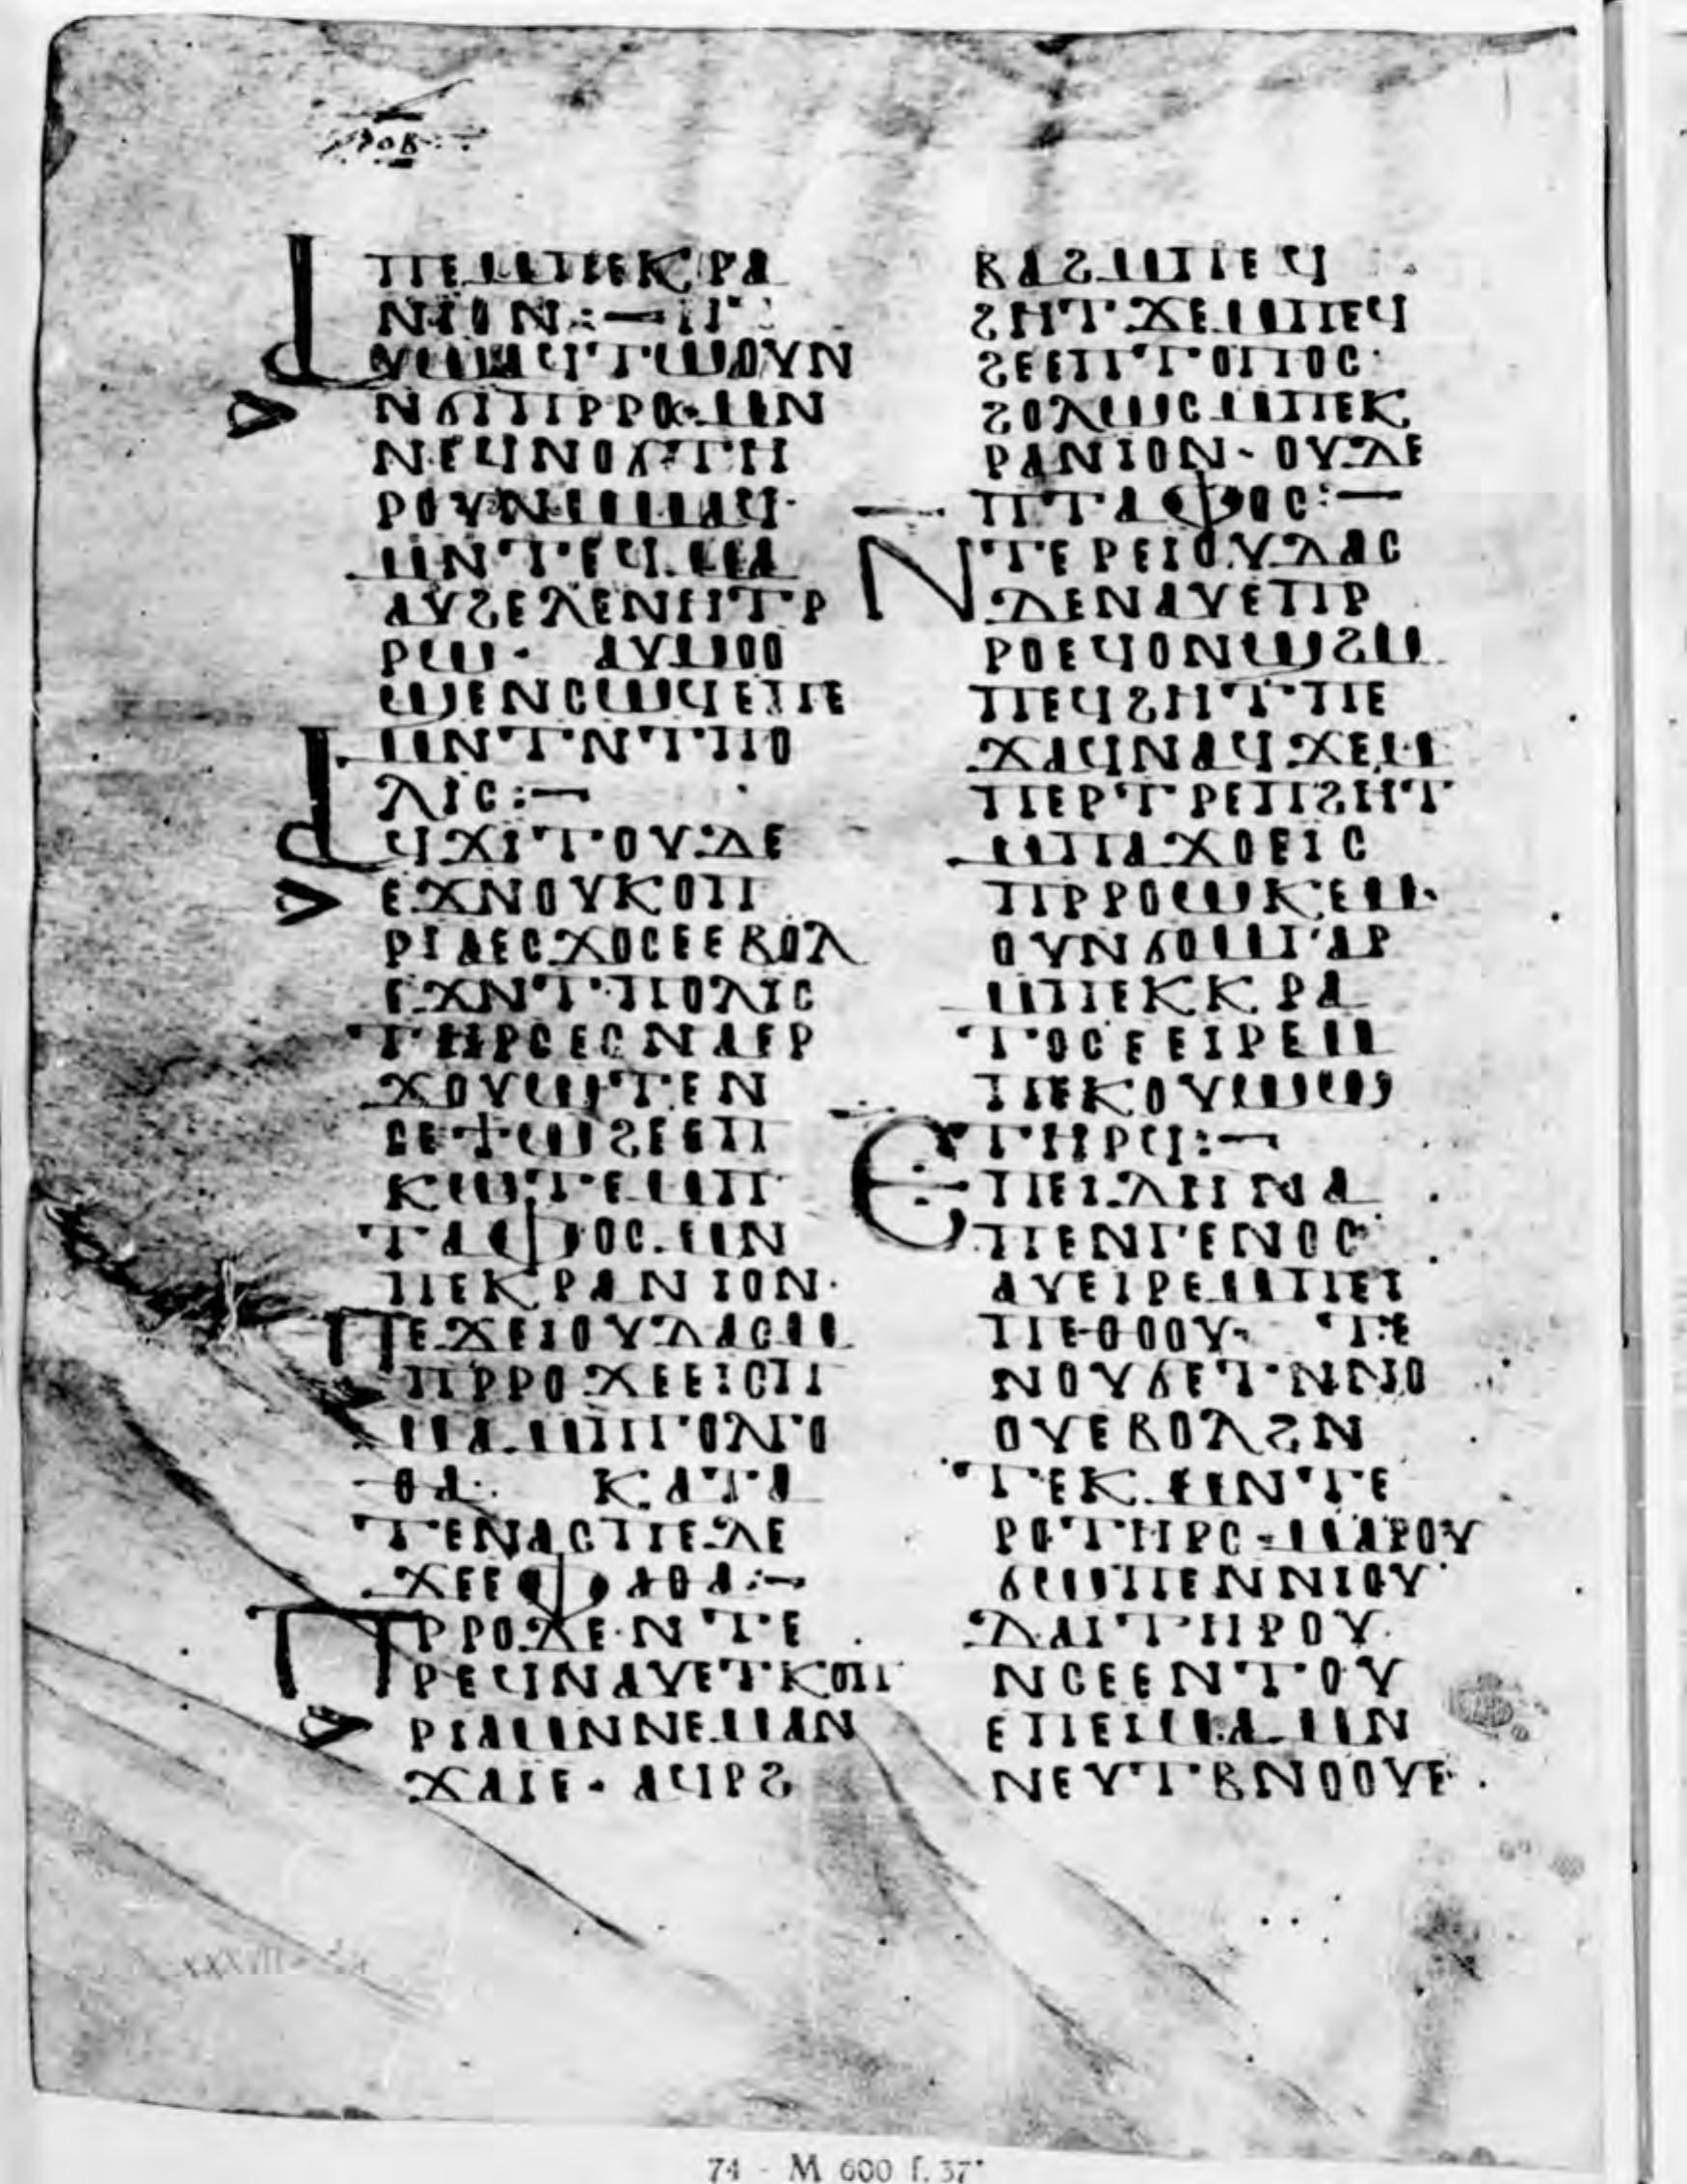 ⲟⲃ
ⲡⲉⲙⲡⲉⲕⲣⲁ
ⲛⲓⲟⲛ:—
ⲁⲩⲱⲁϥⲧⲱⲟⲩⲛ
ⲛϭⲓⲡⲣⲣⲟ·ⲙⲛ
ⲛⲉϥⲛⲟϭⲧⲏ
ⲣⲟⲩⲛⲙⲙⲁϥ·
ⲙⲛⲧⲉϥⲙⲁ
ⲁⲩϩⲉⲗⲉⲛⲏⲧⲣ
ⲣⲱ· ⲁⲩⲙⲟⲟ
ϣⲉⲛⲥⲱϥⲉⲡⲉ
ⲙⲛⲧⲛⲧⲡⲟ
ⲗⲓⲥ:—
ⲁϥϫⲓⲧⲟⲩⲇⲉ
ⲉϫⲛⲟⲩⲕⲟⲡ
ⲣⲓⲁⲉⲥϫⲟⲥⲉⲉⲃⲟⲗ
ⲉϫⲛⲧⲡⲟⲗⲓⲥ
ⲧⲏⲣⲥⲉⲥⲛⲁⲉⲣ
ϫⲟⲩⲱⲧⲉⲛ
ⲥⲉⲧⲱϩⲉⲉⲡ
ⲕⲱⲧⲉⲙⲡ
ⲧⲁⲫⲟⲥ·ⲙⲛ
ⲡⲉⲕⲣⲁⲛⲓⲟⲛ·
ⲡⲉϫⲉⲓⲟⲩⲇⲁⲥⲙ
ⲡⲣⲣⲟϫⲉⲉⲓⲥⲡ
ⲙⲁⲙⲡⲅⲟⲗⲅⲟ
ⲑⲁ· ⲕⲁⲧⲁ
ⲧⲉⲛⲁⲥⲡⲉⲇⲉ
ϫⲉⲉⲫⲁⲑⲁ:—
ⲡⲣⲣⲟⲇⲉⲛⲧⲉ
ⲣⲉϥⲛⲁⲩⲉⲧⲕⲟⲡ
ⲣⲓⲁⲙⲛⲛⲉⲙⲁⲛ
ϫⲁⲓⲉ· ⲁϥⲣϩ
ⲃⲁϩⲙⲡⲉϥ
ϩⲏⲧ·ϫⲉⲙⲡⲉϥ
ϩⲉⲉⲡⲧⲟⲡⲟⲥ·
ϩⲟⲗⲱⲥⲙⲡⲉⲕ
ⲣⲁⲛⲓⲟⲛ· ⲟⲩⲇⲉ
ⲡⲧⲁⲫⲟⲥ:—
ⲛⲧⲉⲣⲉⲓⲟⲩⲇⲁⲥ
ⲇⲉⲛⲁⲩⲉⲡⲣ
ⲣⲟⲉϥⲟⲛⲱϩⲙ
ⲡⲉϥϩⲏⲧ·ⲡⲉ
ϫⲁϥⲛⲁϥϫⲉⲙ
ⲡⲉⲣⲧⲣⲉⲡϩⲏⲧ
ⲙⲡⲁϫⲟⲉⲓⲥ
ⲡⲣⲣⲟⲱⲕⲉⲙ·
ⲟⲩⲛϭⲟⲙⲅⲁⲣ
ⲙⲡⲉⲕⲕⲣⲁ
ⲧⲟⲥⲉⲉⲓⲣⲉⲙ
ⲡⲉⲕⲟⲩⲱϣ
ⲧⲏⲣϥ:—
ⲉⲡⲉⲓⲇⲏⲛⲁ
ⲡⲉⲛⲅⲉⲛⲟⲥ
ⲁⲩⲉⲓⲣⲉⲙⲡⲉⲓ
ⲡⲉⲑⲟⲟⲩ· ⲧⲉ
ⲛⲟⲩϭⲉⲧⲛⲛⲟ
ⲟⲩⲉⲃⲟⲗϩⲛ
ⲧⲉⲕⲙⲛⲧⲉ
ⲣⲟⲧⲏⲣⲥ·ⲙⲁⲣⲟⲩ
ϭⲱⲡⲉⲛⲛⲓⲟⲩ
ⲇⲁⲓⲧⲏⲣⲟⲩ
ⲛⲥⲉⲉⲛⲧⲟⲩ
ⲉⲡⲉⲓⲙⲁ·ⲙⲛ
ⲛⲉⲩⲧⲃⲛⲟⲟⲩⲉ·
74 - M 600 f. 37ᵛ